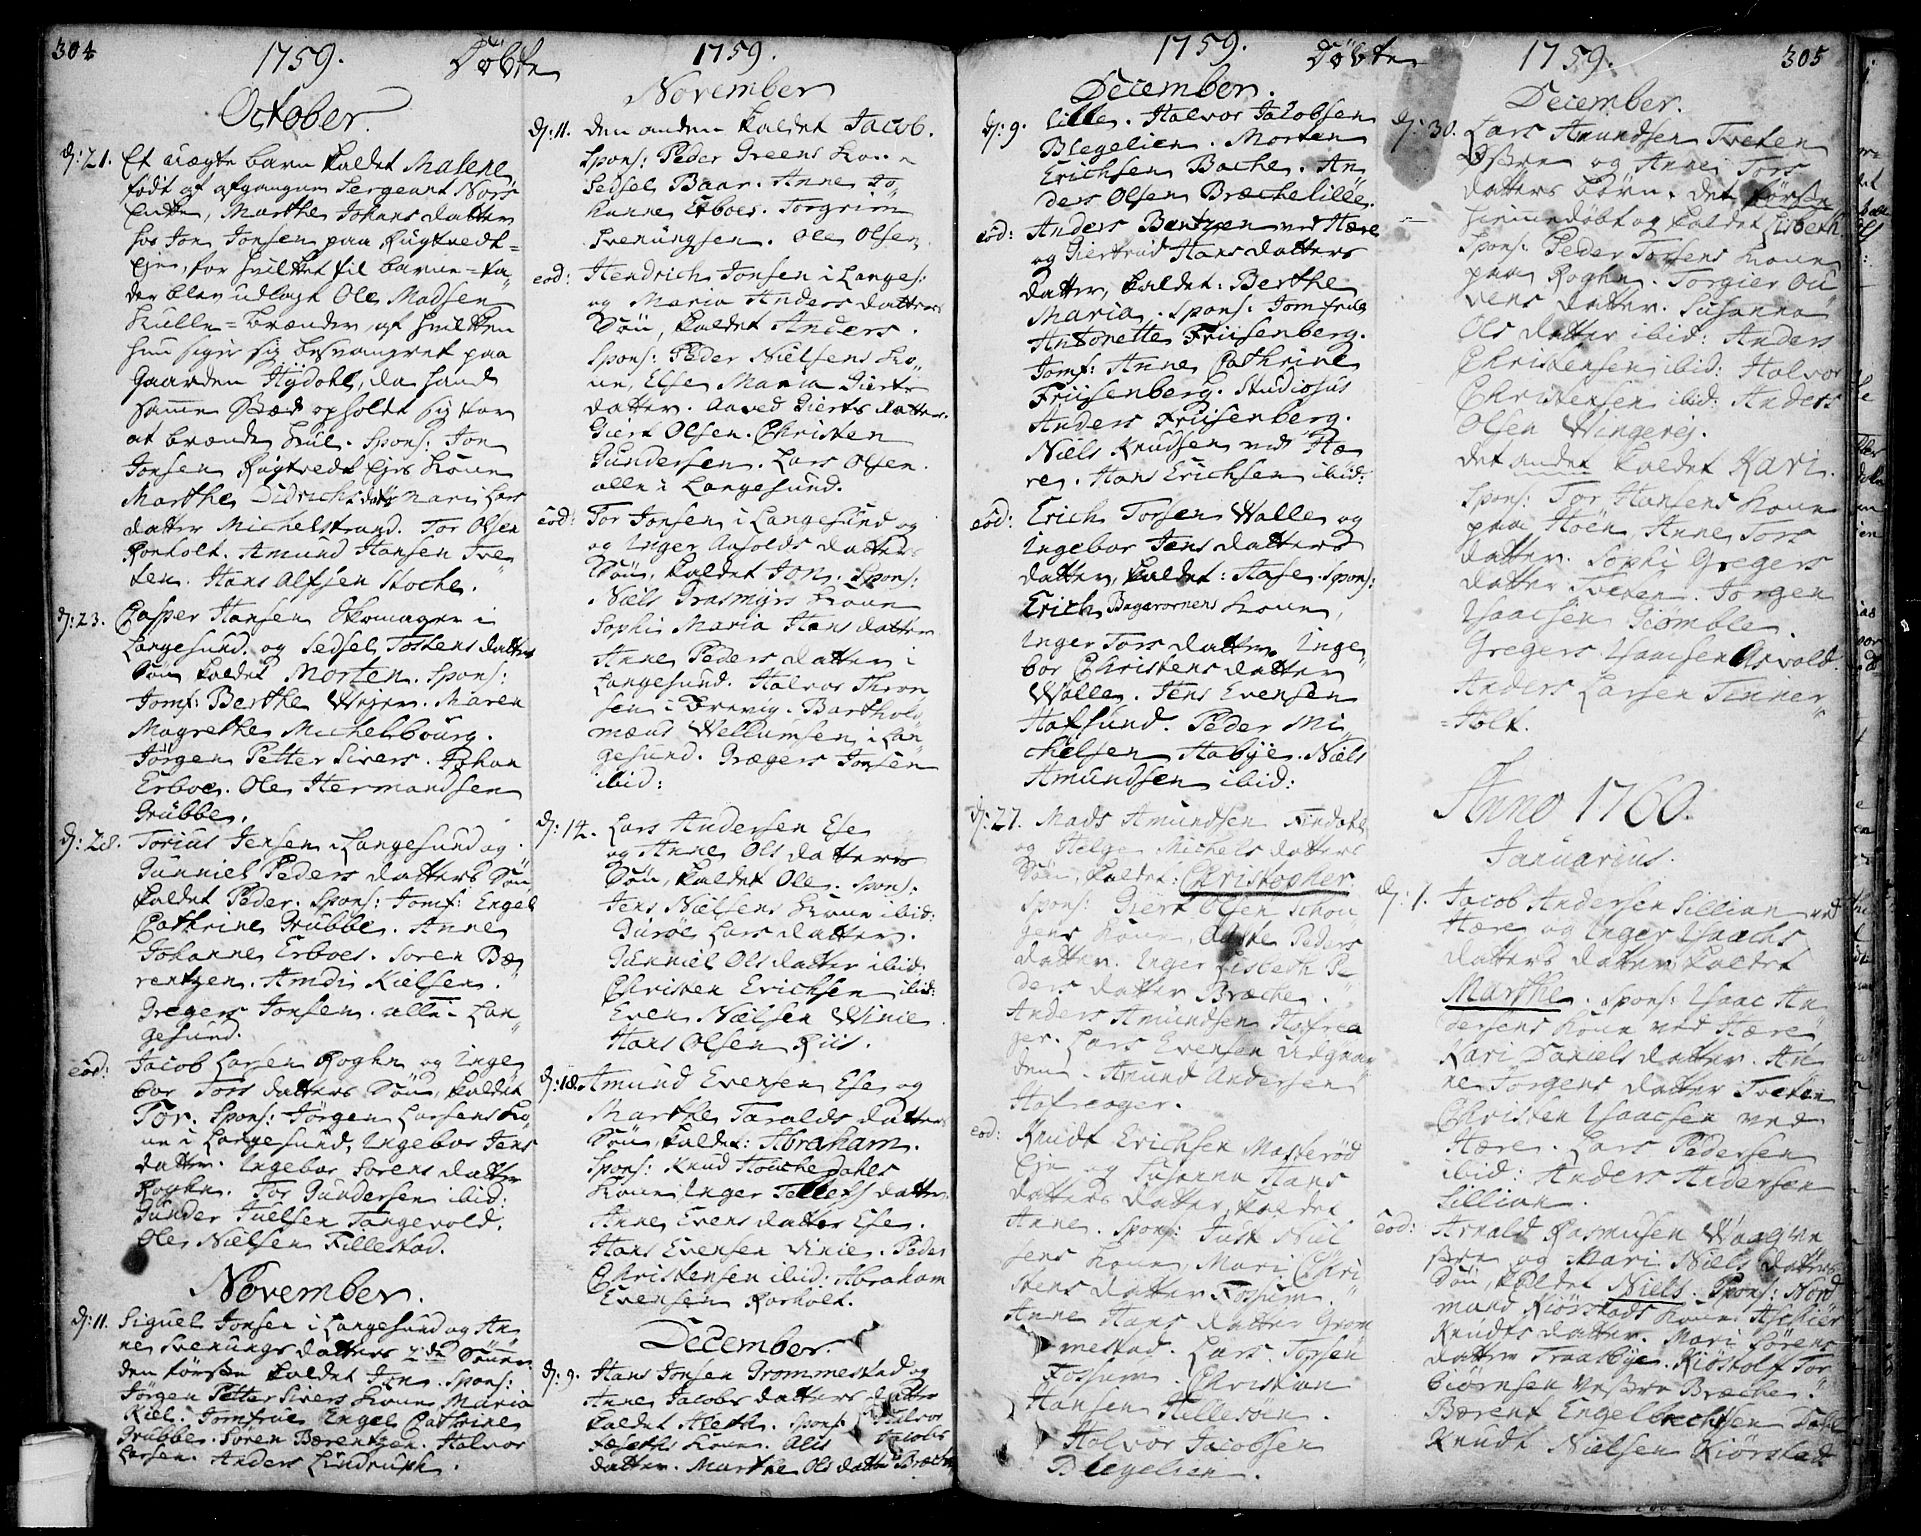 304
1759. Döbte
October.
d: 21. Et uægte barn kaldet Malene
födt af afgangne Sergeant Nors
Enke, Marthe Johans datter
hos Jon Jonsen paa Rugtvedt=
Eje, for hvilket til barne=fa„
der blev udlagt Ole Madsen
Kulle=brænder, af hvilken
hun siger sig besvangret paa
Gaarden Hydahl, da hand
samme Stæd opholdt sig for
at brænde Kul. Spons: Jon
Jonsen Rugtvedt Ejes Kone
Marthe Didrichs datter Mari Lars
datter Michelstrand. Tor Olsen
Ronholt. Amund Hansen Tve„
ten. Hans Alfsen Stoche.
d: 23. Casper Hansen Skomager i
Langesund og Sedsel Tostens datters
Sön kaldet Morten. Spons:
Jomf: Berthe Wejer. Maren
Magrethe Michelsbourg.
Jörgen Petter Sivers. Johan
Erboe. Ole Hermandsen
Grubbe.
d: 28. Torius Jensen i Langesund og
Gunniel Peders datters Sön
kaldet Peder. Spons: Jomf: Engel
Cathrine Grubbe. Anne
Johanne Erboes. Soren Bæ„
rentzen. Amdi Kielsen.
Gregers Jonsen. alle i Lan„
gesund.
eod: Jacob Larsen Roghn og Inge„
bor Tors datters Sön, kaldet
Tor. Spons: Jörgen Larsens Ko„
ne i Langesund, Ingebor Jens
datter. Ingebor Sörens datter
Roghn. Tor Gundersen ibid:
Gunder Juelsen Tangevold.
Ole Nielsen Tillestad.
November.
d: 11. Siguel Jonsen i Langesund og An„
ne Svenungs datters 2de Sönner
den förste kaldet Jon. Spons:
Jörgen Petter Sivers Kone Maria
Kiel. Jomfrue Engel Cathrine
Grubbe. Sören Bærentzen. Halvor
Larsen. Anders Lindrup.
1759.
November
d: 11. den anden kaldet Jacob.
Spons: Peder Greens Kone
Sedsel Baar. Anne Jo„
hanne Erboes. Torgrim
Svenungsen. Ole Olsen.
eod: Hendrich Jonsen i Langes:
og Maria Anders datters
Sön, kaldet Anders.
Spons: Peder Nielsens Ko„
ne, Else Maria Gierts
datter. Aaved Gierts datter.
Giert Olsen. Christen
Gundersen. Lars Olsen.
alle i Langesund.
eod: Tor Jonsen i Langesund og
og Inger Aasolds datters
Sön, kaldet Jon. Spons:
Niels Grasmyrs Kone
Sophi Maria Hans datter
Anne Peders datter i
Langesund. Halvor Thron
sen i Brevig. Barthol„
mæus Wellumsen i Lan„
gesund. Grægers Jonsen
ibid:
d: 14. Lars Andersen Ese
og Anne Ols datters
Sön, kaldet Ole. Spons:
Jens Nielsens Kone ibid:
Guroe Lars datter.
Gunniel Ols datter ibid:
Christen Erichsen ibid:
Even Nielsen Winie.
Hans Olsen Riis.
d: 18. Amund Evensen Ese og
Marthe Taralds datters
Sön, kaldet: Abraham.
Spons: Knud Houchedales
Kone Inger Tellefs datter
Anne Evens datter Ese.
Hans Evensen Vinie. Peder
Christensen ibid: Abraham
Evensen Rorholt.
December.
d: 9. Hans Jonsen Grommestad og
Anne Jacobs datters datter
kaldet Aleth. Spons: Halvor
Kone. Alis Jacobs
datter. Marthe Ols datter Bræche
1759. Döbte
December.
d: 9. lille. Halvor Jacobsen
Blegelien. Morten
Erichsen Bache. An„
ders Olsen Bræchelille.
eod: Anders Bentzen ved Hære
og Giertrud Hans datters
datter, kaldet: Berthe
Maria. Spons: Jomfrue
Antonette Friisenberg.
Jomf: Anne Cathrine
Friisenberg. Studiosus
Anders Friisenberg.
Niels Knudsen ved Hæ
re. Hans Erichsen ibid:
eod: Erich Torsen Walle og
Ingebor Jens datters
datter, kaldet: Aase. Spons:
Erich Bagerovnens Kone,
Inger Tors datter Inge„
bor Christens datter
Walle. Jens Evensen
Hafsund. Peder Mi„
chelsen Habye. Niels
Amundsen ibid:
d: 27. Mads Amundsen Findahl
og Helge Michels datters
Sön, kaldet: Christopher
Spons: Giert Olsen Schou
gens Kone, Aaste Peders
datter. Inger Lisbeth Pe„
ders datter Bræche.
Anders Amundsen Hofrea
ger. Lars Evensen Udgaar
den. Amund Andersen
Hofreager.
eod: Knudt Erichsen Masteröd
Eje og Susanna Hans
datters datter, kaldet
Anne. Spons: Just Niel
sens Kone, Mari Chri„
stens datter Fossum.
Anne Hans datter Grom
mestad. Lars Torsen
Fossum. Christian
Hansen Tillesön.
Halvor Jacobsen
Blegelien.
1759. 305
December.
d: 30. Lars Amundsen Tveten
Östre og Anne Tors
datters börn. det förste
hiemmedöbt og kaldet Lisbeth.
Spons: Peder Torsens Kone
paa Roghn. Torgier Ou„
vens datter. Susanna
Ols datter ibid: Anders
Christensen ibid: Halvor
Christensen ibid: Anders
Olsen Wingerej.
det andet kaldet Kari.
Spons: Tor Hansens Kone
paa Höen Anne Tors
datter. Sophi Gregers
datter Tveten. Jörgen
Isaacsen Giömble.
Gregers Isaacsen Aasvold.
Anders Larsen Tenner„
=Holt.
Anno 1760.
Januarius.
d: 1. Jacob Andersen Sillian ved
Hære og Inger Isaachs
datters datter kaldet
Marthe. Spons: Isaac An„
dersens Kone ved Hære
Kari Daniels datter. An„
ne Jörgens datter Tveten
Christen Isaacsen ved
Hære. Lars Pedersen
ibid: Anders Andersen
Sillian.
eod: Arnold Rasmusen Waag ve
stre og Mari Niels datters
Sön, kaldet Niels. Spons: Nord
mand Kiörstads Kone Aschier
Knudts datter. Mari Sörens
datter Traasbye. Kiöstolf Tor
biörnsen vestre Bræche.
Bærent Engelbrechtsen Dahl
Knudt Nielsen Kiörstad